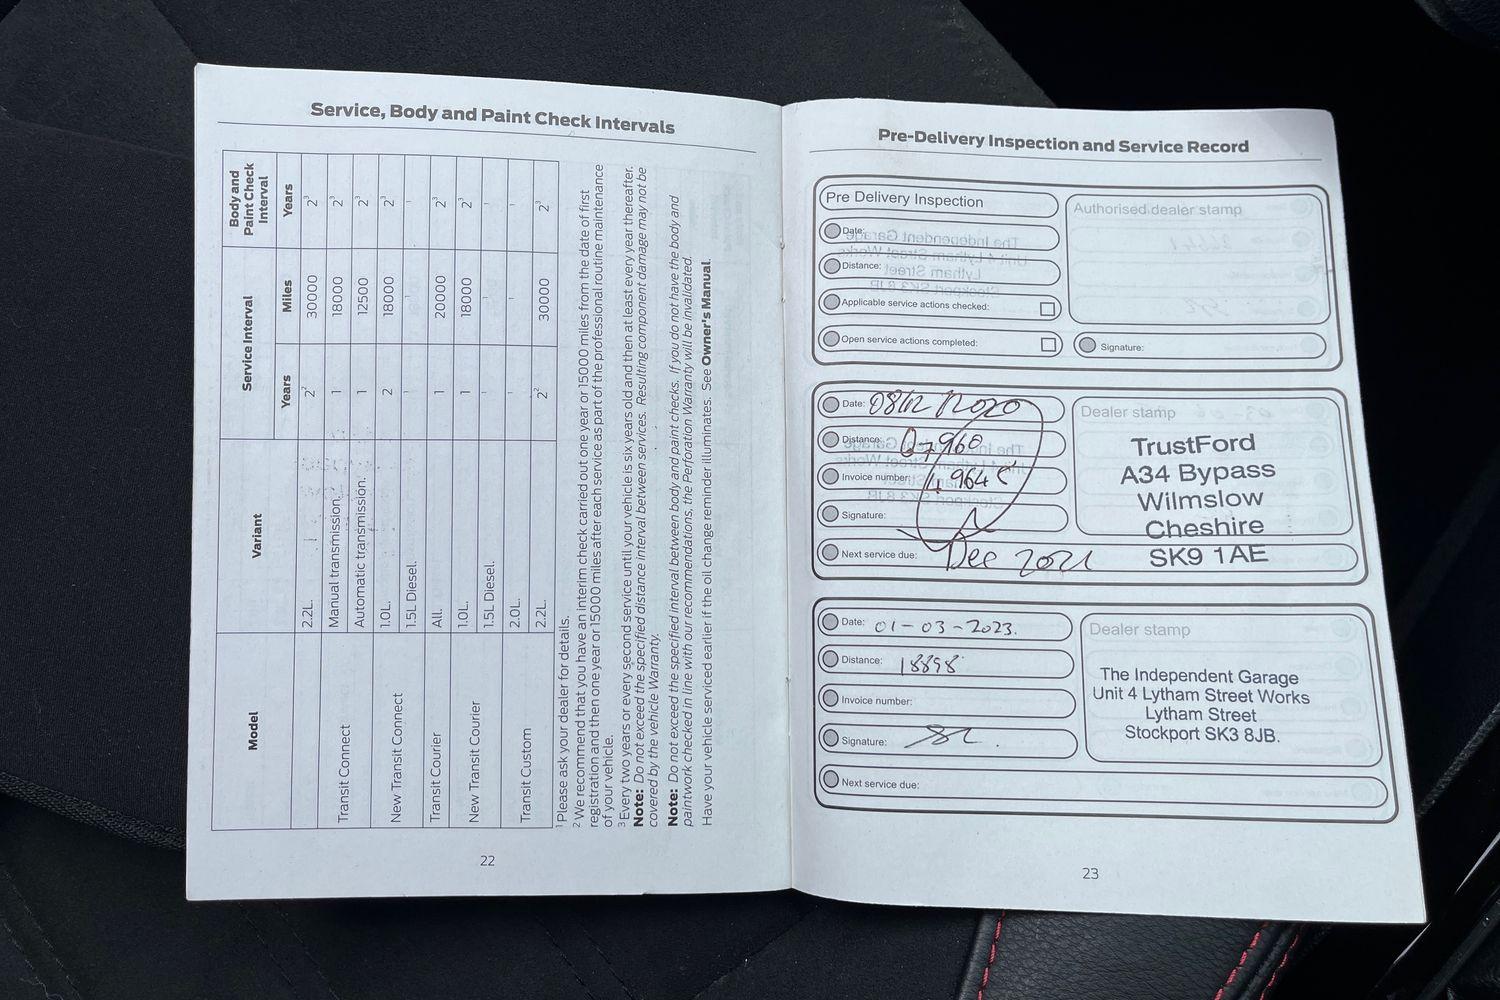 Service, Body and Paint Check Intervals
Model
Variant
Service Interval
Body and
Paint Check
Interval
Years
Miles
Years
2.2L.
2²
30000
2³
Transit Connect
Manual transmission.
1
18000
2³
Automatic transmission.
1
12500
2³
New Transit Connect
1.0L.
2
18000
2³
1.5L Diesel.
Transit Courier
All.
1
20000
2³
New Transit Courier
1.0L.
1
18000
2³
1.5L Diesel.
Transit Custom
2.0L.
2.2L.
2²
30000
2³
¹ Please ask your dealer for details.
² We recommend that you have an interim check carried out one year or 15000 miles from the date of first
registration and then one year or 15000 miles after each service as part of the professional routine maintenance
of your vehicle.
³ Every two years or every second service until your vehicle is six years old and then at least every year thereafter.
Note: Do not exceed the specified distance interval between services. Resulting component damage may not be
covered by the vehicle Warranty.
Note: Do not exceed the specified interval between body and paint checks. If you do not have the body and
paintwork checked in line with our recommendations, the Perforation Warranty will be invalidated.
Have your vehicle serviced earlier if the oil change reminder illuminates. See Owner's Manual.
22
Pre-Delivery Inspection and Service Record
Pre Delivery Inspection
Date:
Distance:
Applicable service actions checked:
Open service actions completed:
Authorised dealer stamp
Signature:
Date: 08/12/2020
Distance: 07960
Invoice number:
Signature:
Next service due: Dec 2021
Dealer stamp
TrustFord
A34 Bypass
Wilmslow
Cheshire
SK9 1AE
Date: 01-03-2023.
Distance: 18898
Invoice number:
Signature:
Next service due:
Dealer stamp
The Independent Garage
Unit 4 Lytham Street Works
Lytham Street
Stockport SK3 8JB.
23